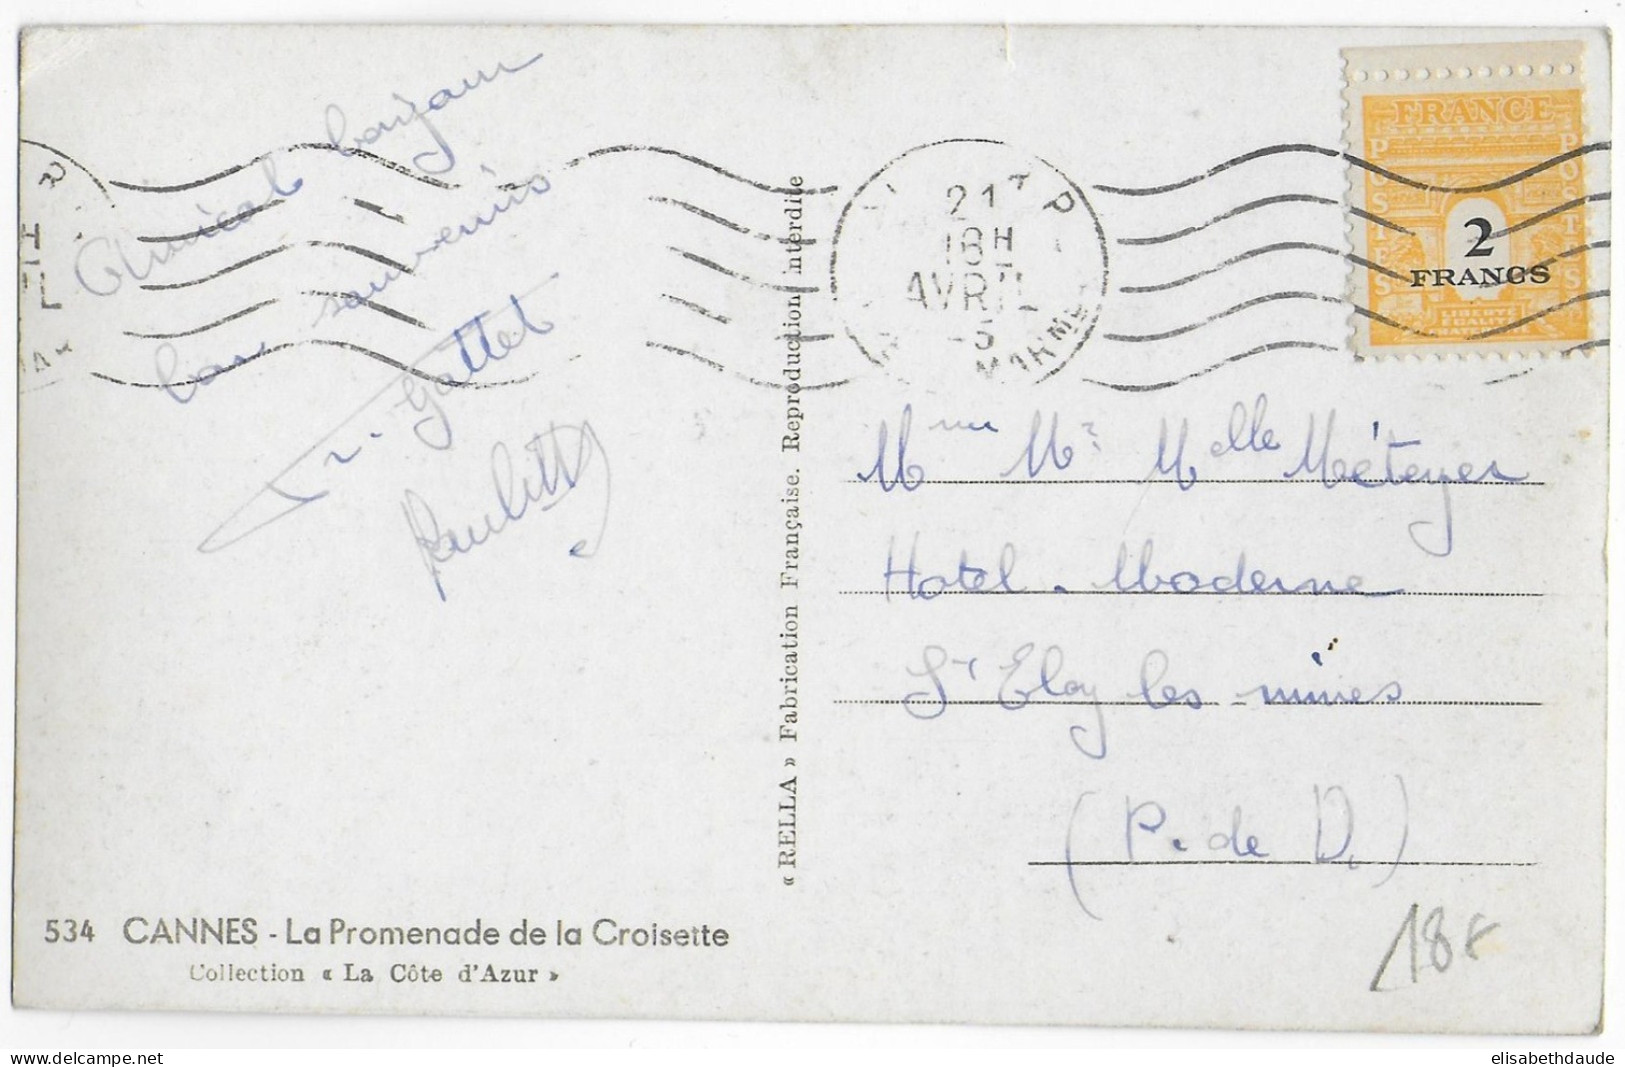 Amical bonjour
bons souvenirs
Gattet
Paulette
R
H
L
21
18H
AVRIL
-5
MARNE
FRANCE
POSTES
POSTES
2
FRANCS
LIBERTÉ
EGALITÉ
Mme Mr Melle Méteyer
Hotel. Moderne
St Eloy les mines
(P. de D.)
« RELLA » Fabrication Française. Reproduction interdite
534 CANNES - La Promenade de la Croisette
Collection « La Côte d'Azur »
18F
elisabethdaude